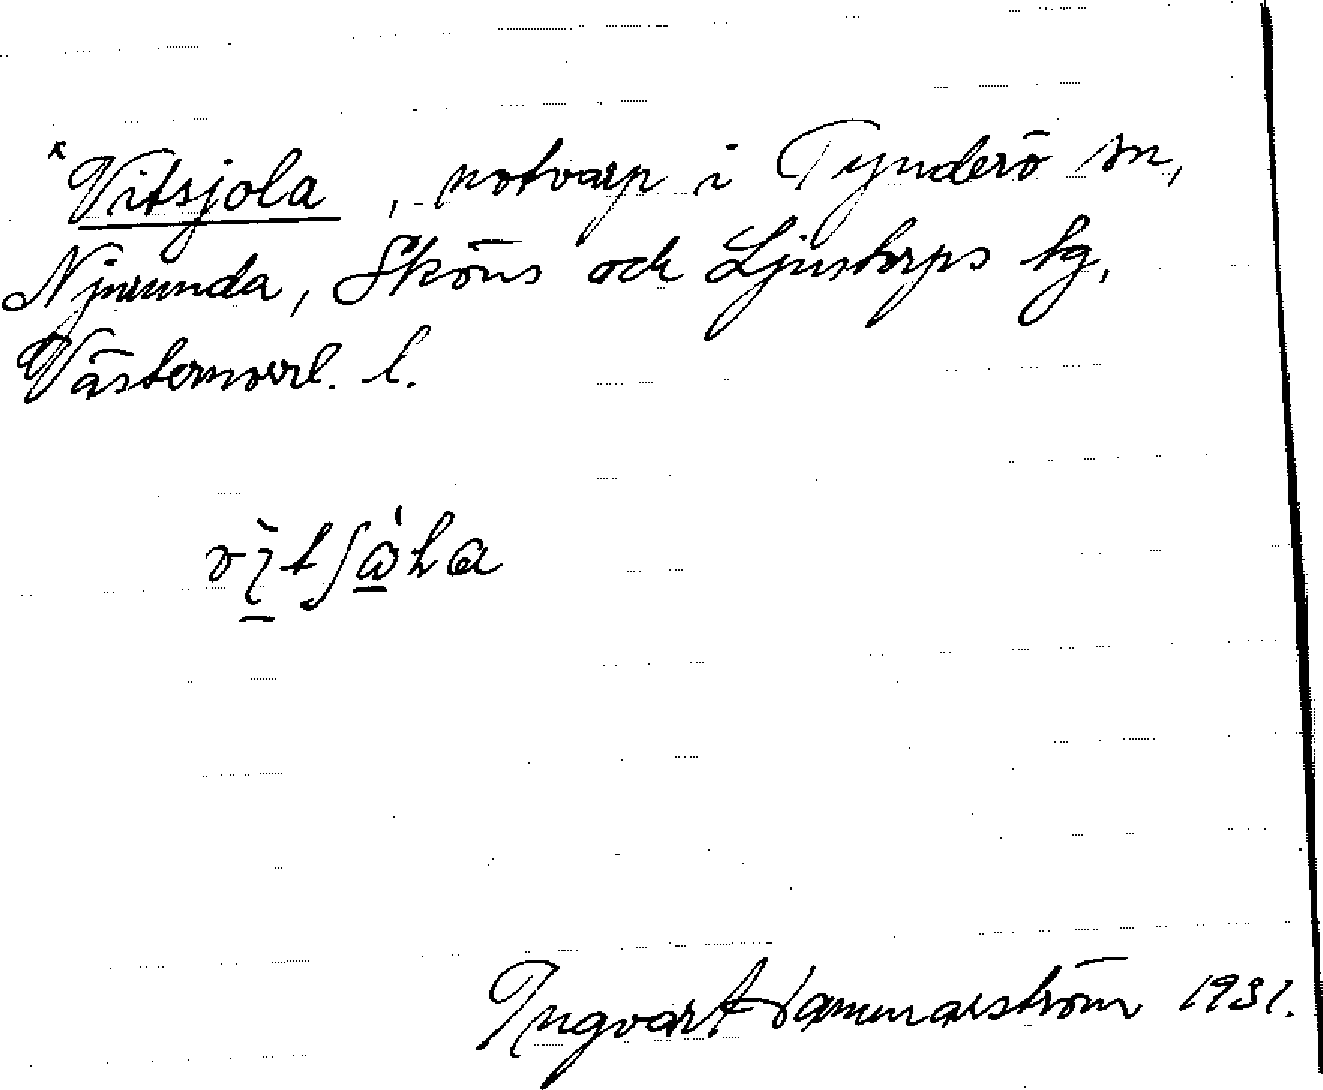 *Vitsjola, notvarp i Tynderö sn,
Njurunda, Sköns och Ljustorps tg,
Västernorrl. l.
Ingvar Hammarström 1931.